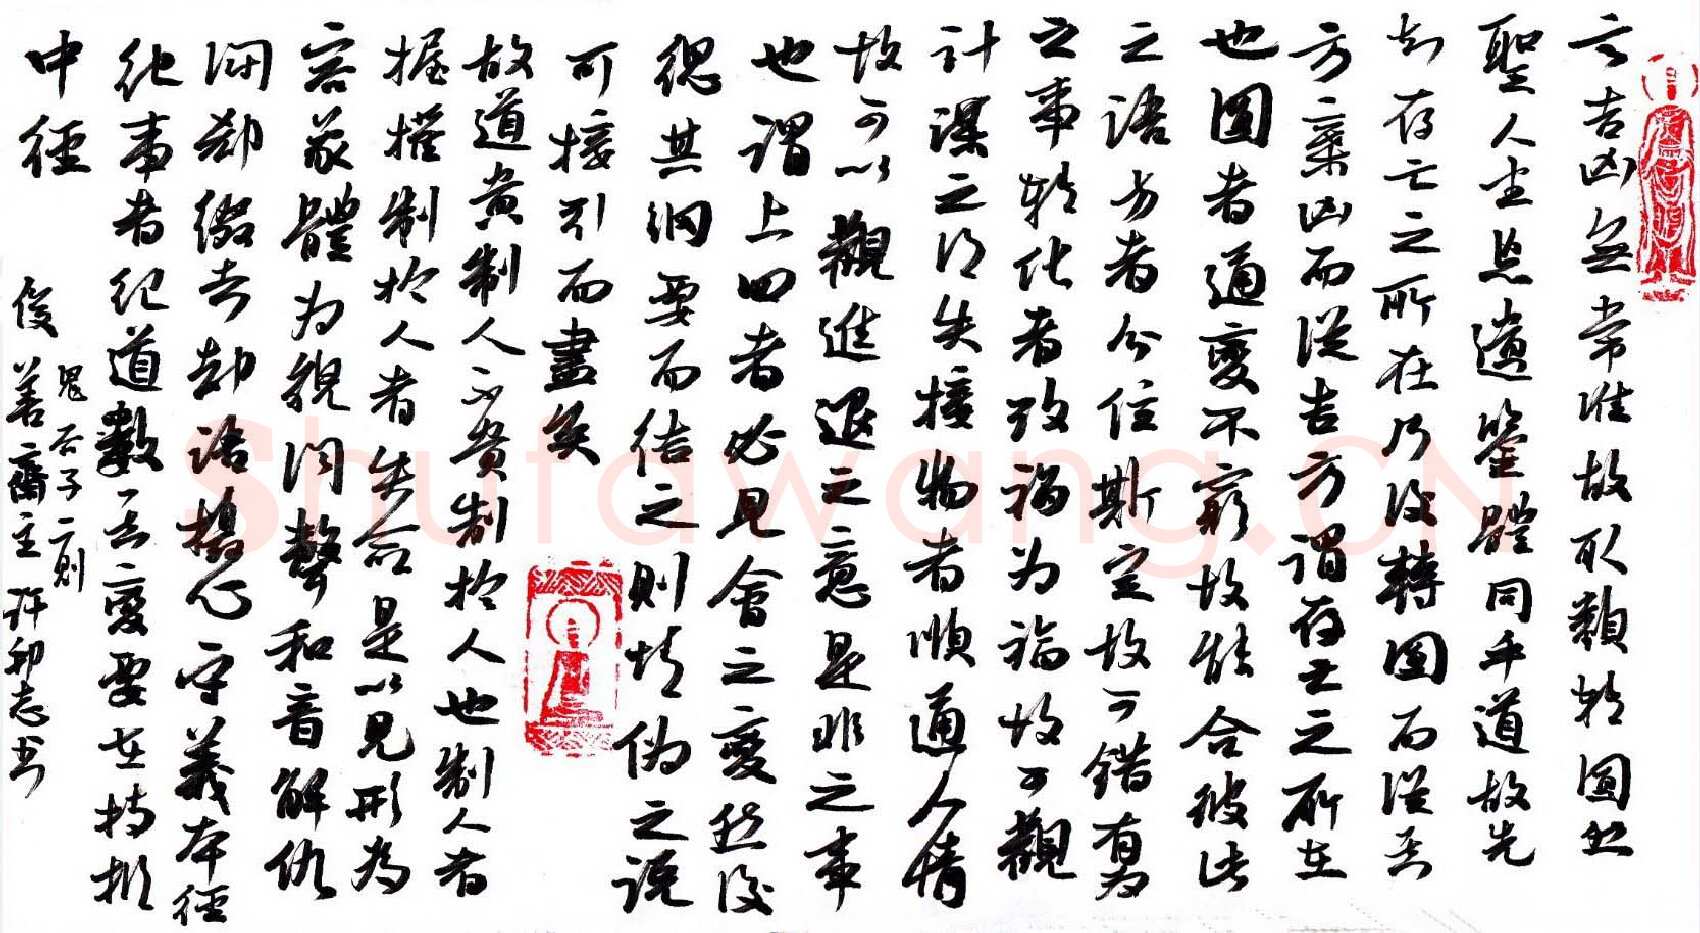 言吉凶無常准故取類轉圓然
聖人坐忘遺鑒體同乎道故先
知存亡之所在乃後轉圓而從其
方棄凶而從吉方謂存亡之所在
也圓者通變不窮故能合彼此
之語方者分位斯定故可錯有為
之事轉化者改禍為福故可觀
計謀之得失接物者順通人情
故可以觀進退之意是非之事
也謂上四者必見會之變然後
總其綱要而結之則情偽之說
可接引而盡矣
故道貴制人不貴制於人也制人者
握權制於人者失命是以見形為
容象體為貌聞聲和音解仇
鬥郄綴去却語攝心守義本徑
紀事者紀道數其變要在持樞
中徑
鬼谷子二則
俊善齋主許志书
Shufawang.CN